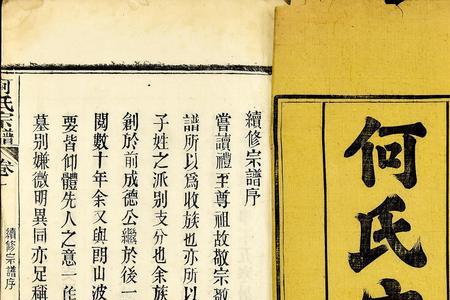 何氏
續修宗譜序
嘗讀禮至尊祖故敬宗敬
譜所以為收族也亦所以
子姓之派別支分也余族
創於前成德公繼於後一
閱數十年余又與朗山波
要皆仰體先人之意一作
墓別嫌微明異同亦足稱
何氏宗譜 卷
續修宗譜序